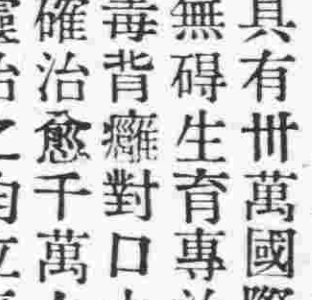 具有卅萬國際
無碍生育專
毒背癰對口
確治愈千萬
靈治之自立